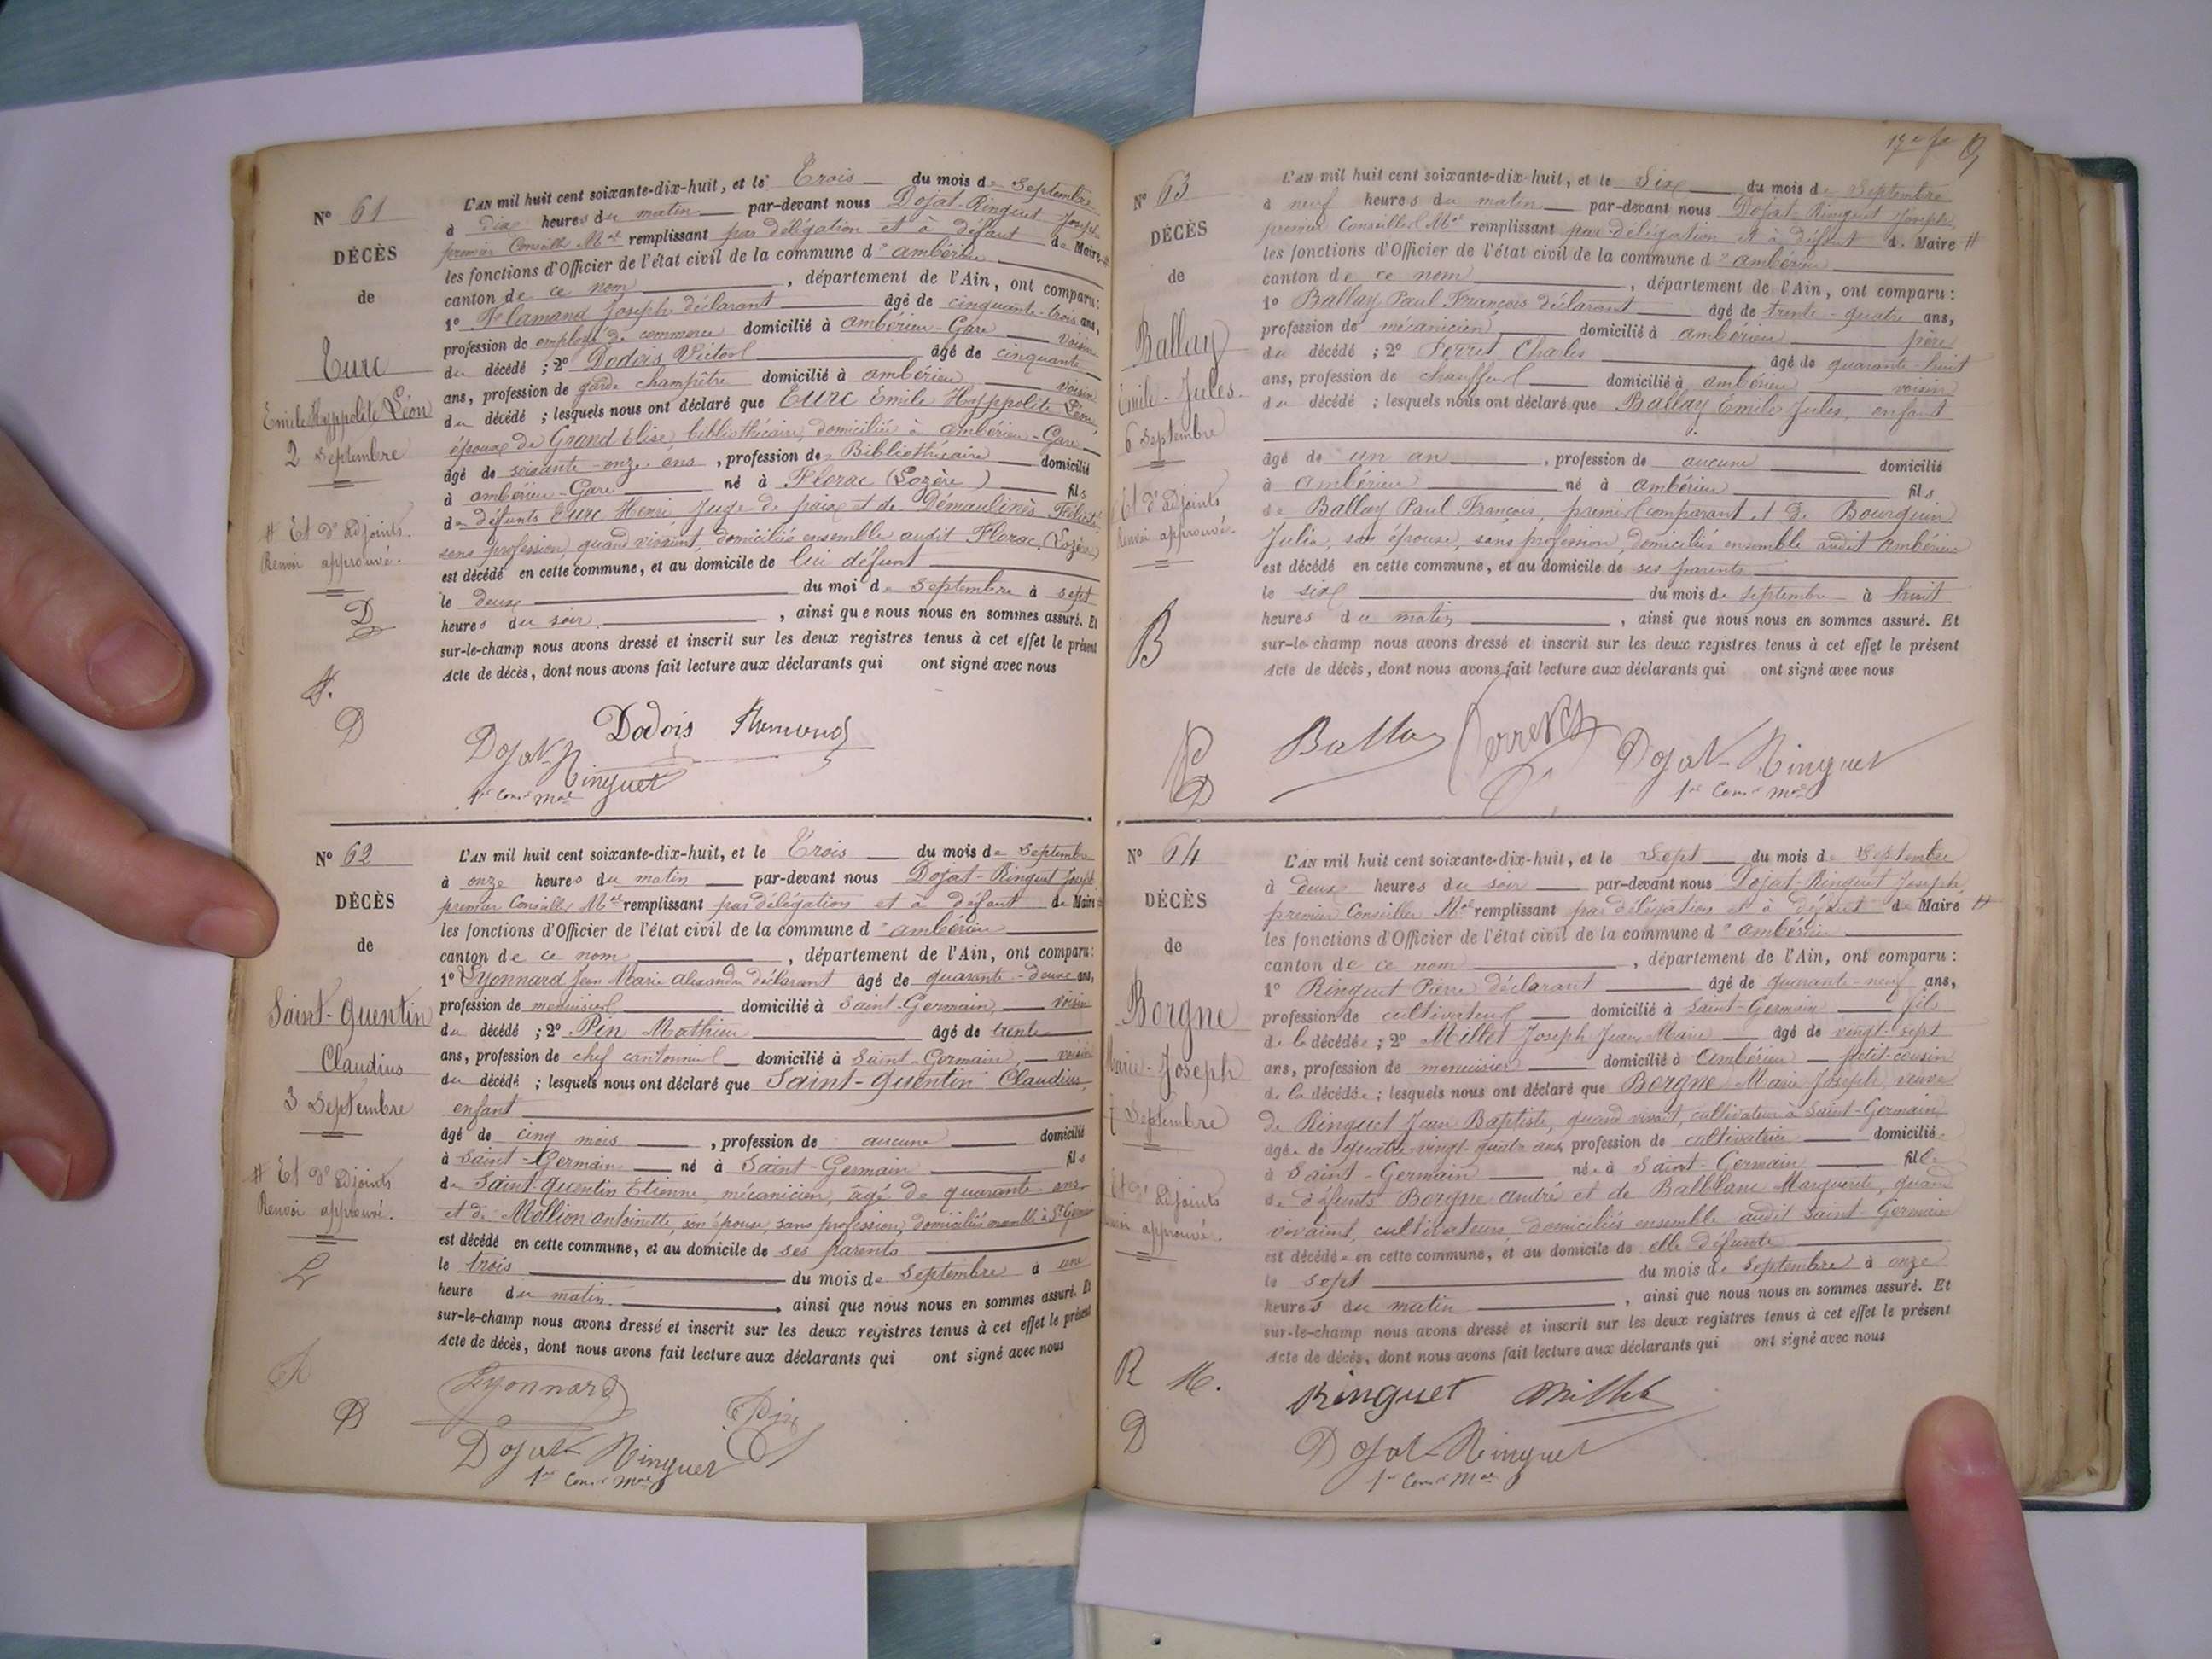 N° 61
DÉCÈS
de
Turc
Emile Hyppolite Léon
2 Septembre
# Et d'Adjoints.
Renvoi approuvé.
D
F.
D
L'AN mil huit cent soixante-dix-huit, et le Trois du mois de Septembre
à dix heures du matin par-devant nous Dojat-Ringuet Joseph
premier Conseiller Mal remplissant par délégation et à défaut de Maire #
les fonctions d'Officier de l'état civil de la commune d'ambérieu
canton de ce nom, département de l'Ain, ont comparu:
1° Flamand Joseph déclarant âgé de cinquante-trois ans,
profession de employé de commerce domicilié à ambérieu-Gare voisin
du décédé ; 2° Dodois Victor âgé de cinquante
ans, profession de garde champêtre domicilié à ambérieu voisin
du décédé ; lesquels nous ont déclaré que Turc Emile Hyppolite Léon,
époux de Grand Elise, bibliothécaire, domiciliée à ambérieu-Gare
âgé de soixante-onze ans, profession de Bibliothécaire domicilié
à ambérieu-Gare né à Florac (Lozère) fils
de défunts Turc Henri Juge de paix et de Démaulinès Félicité
sans profession, quand vivaient, domiciliés ensemble audit Florac, (Lozère)
est décédé en cette commune, et au domicile de lui défunt
le deux du moi de Septembre à sept
heures du soir, ainsi que nous nous en sommes assuré. Et
sur-le-champ nous avons dressé et inscrit sur les deux registres tenus à cet effet le présent
Acte de décès, dont nous avons fait lecture aux déclarants qui ont signé avec nous
Dodois Flamand
Dojat-Ringuet
1er Conser Mal
N° 62
DÉCÈS
de
Saint-Quentin
Claudius
3 Septembre
# Et d'Adjoints
Renvoi approuvé.
L
D
L'AN mil huit cent soixante-dix-huit, et le Trois du mois de Septembre
à onze heures du matin par-devant nous Dojat-Ringuet Joseph
premier Conseiller Mal remplissant par délégation et à défaut de Maire #
les fonctions d'Officier de l'état civil de la commune d'ambérieu
canton de ce nom, département de l'Ain, ont comparu:
1° Lyonnard Jean Marie Alexandre déclarant âgé de quarante-deux ans,
profession de menuisier domicilié à Saint-Germain voisin
du décédé ; 2° Pin Mathieu âgé de trente
ans, profession de chef cantonnier domicilié à Saint-Germain, voisin
du décédé ; lesquels nous ont déclaré que Saint-Quentin Claudius,
enfant
âgé de cinq mois, profession de aucune domicilié
à Saint-Germain né à Saint-Germain fils
de Saint-Quentin Etienne, mécanicien, âgé de quarante ans
et de Mollion Antoinette, son épouse, sans profession, domiciliés ensemble à St Germain
est décédé en cette commune, et au domicile de ses parents
le trois du mois de Septembre à une
heure du matin, ainsi que nous nous en sommes assuré. Et
sur-le-champ nous avons dressé et inscrit sur les deux registres tenus à cet effet le présent
Acte de décès, dont nous avons fait lecture aux déclarants qui ont signé avec nous
Lyonnard Pin
Dojat-Ringuet
1er Conser Mal
N° 63
DÉCÈS
de
Ballay
Emile-Jules.
6 Septembre
Et d'Adjoints
Renvoi approuvé.
B
P
D
L'AN mil huit cent soixante-dix-huit, et le Six du mois de Septembre
à neuf heures du matin par-devant nous Dojat-Ringuet Joseph,
premier Conseiller Mal remplissant par délégation et à défaut de Maire #
les fonctions d'Officier de l'état civil de la commune d'ambérieu
canton de ce nom, département de l'Ain, ont comparu :
1° Ballay Paul François déclarant âgé de trente-quatre ans,
profession de mécanicien domicilié à ambérieu père
du décédé ; 2° Perret Charles âgé de quarante-huit
ans, profession de chauffeur domicilié à ambérieu voisin
du décédé ; lesquels nous ont déclaré que Ballay Emile Jules, enfant
âgé de un an, profession de aucune domicilié
à ambérieu né à ambérieu fils
de Ballay Paul François, premier comparant et de Bourquin
Julia, son épouse, sans profession, domiciliés ensemble audit ambérieu
est décédé en cette commune, et au domicile de ses parents
le six du mois de Septembre à huit
heures du matin, ainsi que nous nous en sommes assuré. Et
sur-le-champ nous avons dressé et inscrit sur les deux registres tenus à cet effet le présent
Acte de décès, dont nous avons fait lecture aux déclarants qui ont signé avec nous
Ballay Perret Ch Dojat-Ringuet
1er Conser Mal
N° 64
DÉCÈS
de
Borgne
Marie-Joseph
7 Septembre
Et d'Adjoints
Renvoi approuvé.
R M.
D
L'AN mil huit cent soixante-dix-huit, et le Sept du mois de Septembre
à deux heures du soir par-devant nous Dojat-Ringuet Joseph,
premier Conseiller Mal remplissant par délégation et à défaut de Maire #
les fonctions d'Officier de l'état civil de la commune d'ambérieu
canton de ce nom, département de l'Ain, ont comparu :
1° Ringuet Pierre déclarant âgé de quarante-neuf ans,
profession de cultivateur domicilié à Saint-Germain fils
de la décédée ; 2° Millet Joseph Jean Marie âgé de vingt-sept
ans, profession de menuisier domicilié à Ambérieu petit-cousin
de la décédée ; lesquels nous ont déclaré que Borgne Marie Joseph, veuve
de Ringuet Jean Baptiste, quand vivait, cultivateur à Saint-Germain,
âgée de quatre vingt quatre ans, profession de cultivatrice domiciliée
à Saint-Germain née à Saint-Germain fille
de défunts Borgne André et de Balblanc Marguerite, quand
vivaient, cultivateurs, domiciliés ensemble audit Saint-Germain
est décédée en cette commune, et au domicile de elle défunte
le sept du mois de Septembre à onze
heures du matin, ainsi que nous nous en sommes assuré. Et
sur-le-champ nous avons dressé et inscrit sur les deux registres tenus à cet effet le présent
Acte de décès, dont nous avons fait lecture aux déclarants qui ont signé avec nous
Ringuet Millet
Dojat-Ringuet
1er Conser Mal